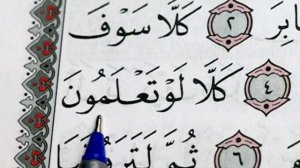 ابِرَ ٢ كَلَّا سَوْفَ
٤ كَلَّا لَوْ تَعْلَمُونَ
٦ ثُمَّ